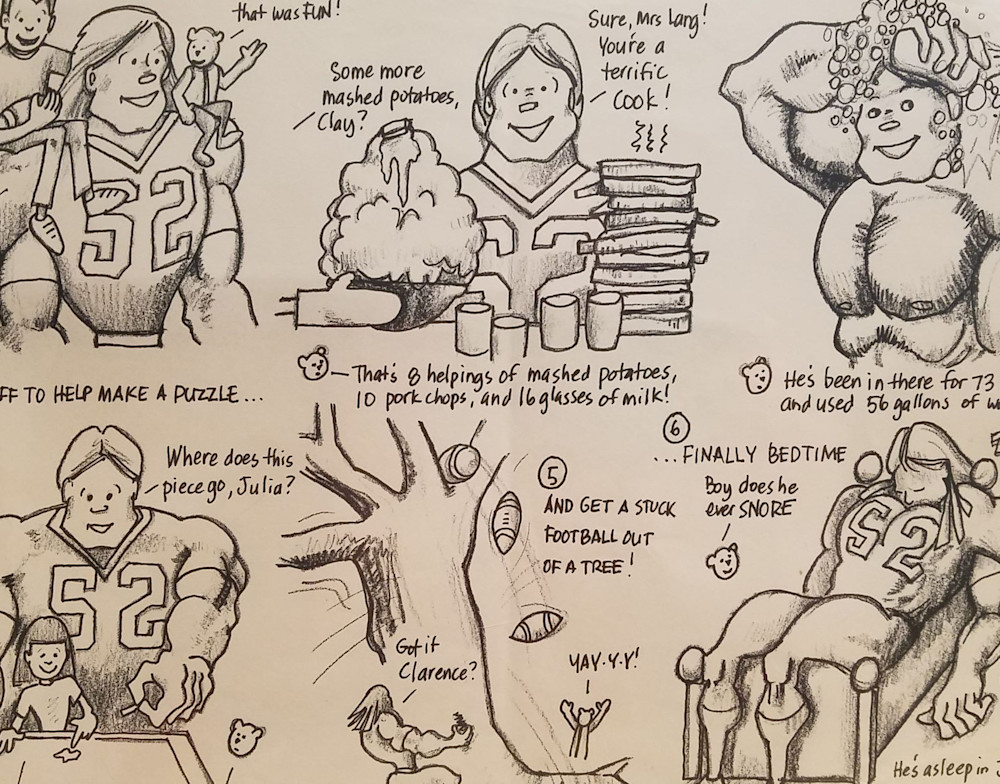 that was FUN!
52
Some more
mashed potatoes,
Clay?
Sure, Mrs Lang!
You're a
terrific
cook!
52
That's 8 helpings of mashed potatoes,
10 pork chops, and 16 glasses of milk!
He's been in there for 73
and used 56 gallons of
FF TO HELP MAKE A PUZZLE...
Where does this
piece go, Julia?
52
5
AND GET A STUCK
FOOTBALL OUT
OF A TREE!
Got it
Clarence?
YAY-Y-Y!
6
...FINALLY BEDTIME
Boy does he
ever SNORE
52
He's asleep in